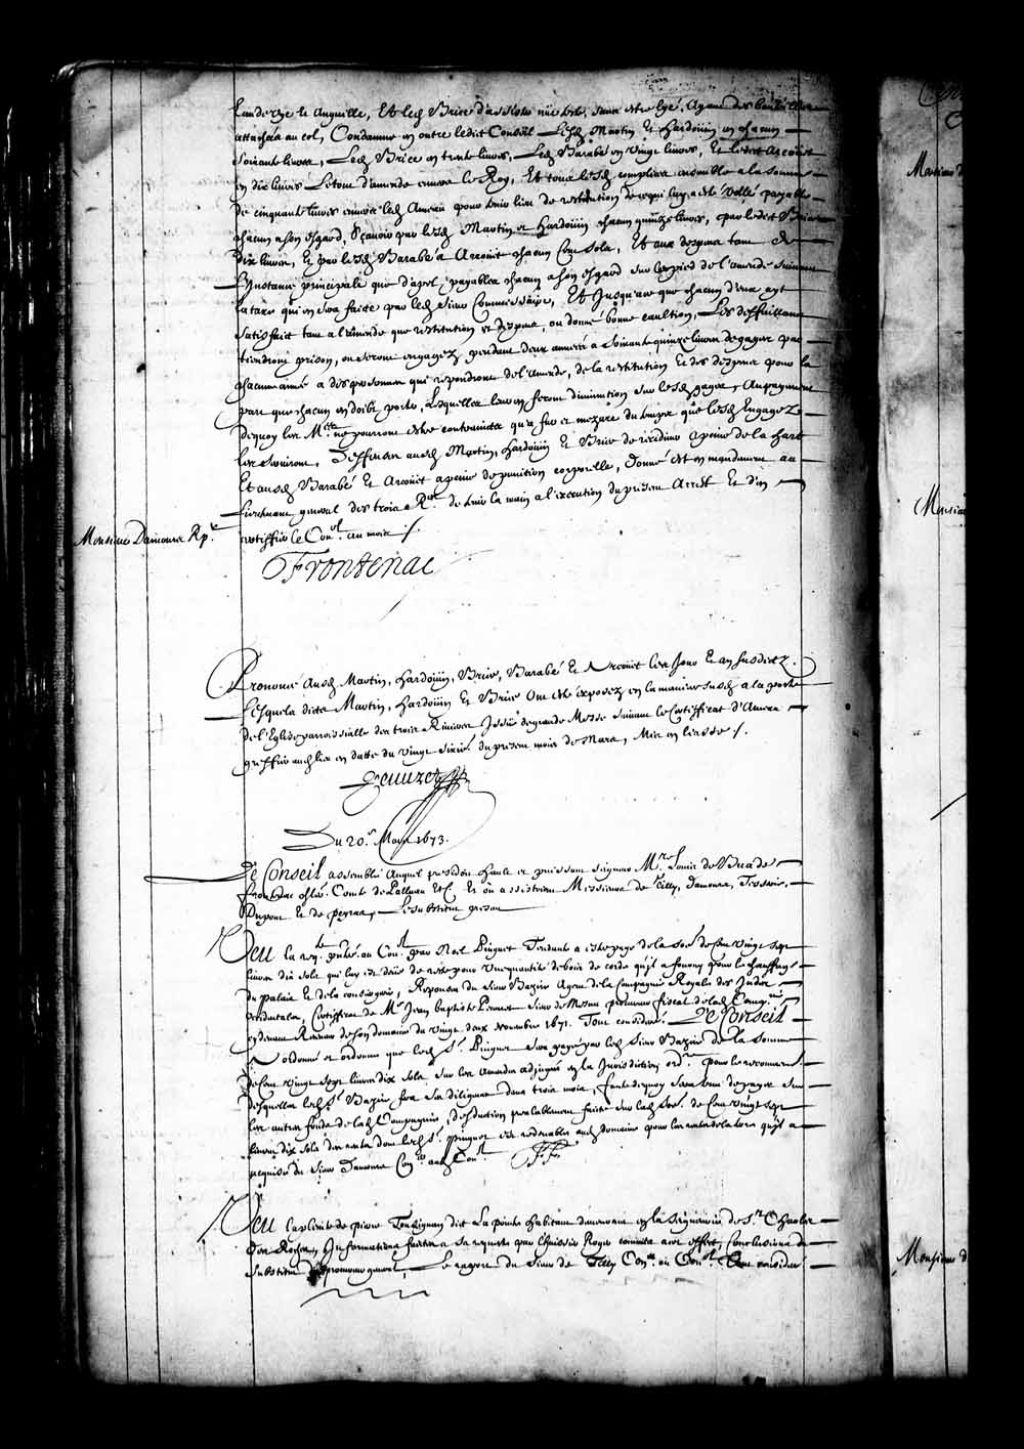 attachée au col, Condamne en outre ledit Conseil Lesd. Martin et Hardouin en chacun
soixante livres, Led. Brice en trente livres, Led. Barabé en vingt livres, Et ledit Arcouet
en dix livres Le tout d'amende envers le Roy, Et tous lesd. complices ensemble a la somme
de cinquante livres envers led. Ameau pour tenir lieu de restitution de ce qui luy a esté vollé payable
chacun a son esgard, Sçavoir par lesd. Martin et Hardouin chacun quinze livres, par ledit Brice
dix livres, Et par lesd. Barabé et Arcouet chacun Cent sols, Et aux despens tant de
L'Instance principale que d'apel, payables chacun a son esgard sur le pied de l'amende suivant
la taxe qui en sera faite par led. sieur Commissaire, Et Jusqu'a ce que chacun d'eux ayt
satisfait tant a l'amende que restitution et despens, ou donné bonne caution, Les deffaillans
tiendront prison, ou seront engagez pendant deux années a soixante quinze livres de gages par
chacune année a des personnes qui repondront de l'amende, de la restitution Et des despens pour la
part que chacun en doibt porter, Lesquelles leur en feront diminution sur lesd. gages, Au payement
dequoy les Mes. ne pourront estre contraincts qu'a fur et mezure du temps que lesd. Engagez
les serviront, Deffenses ausd. Martin, Hardouin Et Brice de recidiver a peine de la hart
Et ausd. Barabé Et Arcouet a peine de punition corporelle, Donné est en mandement au
Lieutenant general des trois Rres. de tenir la main a l'execution du present Arrest Et d'en
certiffier le Conel. au mois /.
Monsieur Damours Rpr.
Frontenac
Prononcé Ausd. Martin, Hardouin, Brice, Barabé Et Arcouet les Jour Et an susdictz.
Lesquels dicts Martin, Hardouin Et Brice Ont esté exposez en la maniere susd. a la porte
de l'Eglise parroissialle des trois Rivieres Issüe de grande Messe suivant le Certifficat d'Ameau
greffier aud. lieu en datte du vingt sixie. du present mois de Mars, Mis en liasse /.
Peuuret
Du 20e. Mars 1673.
Le Conseil assemblé Auquel presidoit Hault et puissant seigneur Mre. Louis de Buade
Frontenac chler. Comte de Palluau Etc. Et où assistoient Messieurs de Tilly, Damours, Tesserie,
Dupont Et de Peyras, Le substitut present
Veu la reqte. pntée. au Conel. par Noel Pinguet Tendante a estre payé de la soe. de Cent vingt sept
livres dix sols qui luy est deüe de reste pour une quantité de bois de corde qu'il a fourny pour le chauffage
du palais Et de la conciergerie, Responses du sieur Bazire Agent de la Compagnie Royale des Indes
Occidentales, Certifficat de Me. Jean Baptiste Peuuret Sieur de Mesnu procureur fiscal de lad. Compnie.
cy devant Receveur de son domaine du vingt deux Novembre 1671. Tout consideré. Le Conseil
a ordonné et ordonne que led. sr. Pinguet sera payé par led. sieur Bazire de la somme
de Cent vingt sept livres dix sols sur les amendes adjugées en la Jurisdiction ordre. pour le recouvremt.
desquelles led. sr. Bazire fera ses diligences dans trois mois, faute dequoy sera tenu de payer sur
les autres fonds de lad. Compagnie, deduction prealablement faite sur lad. soe. de Cent vingt sept
livres dix sols des rentes dont led. sr. Pinguet est redevable aud. domaine pour les
acquises du sieur Damours Coner. aud. Conel.
FF
Veu la plainte de pierre Tousignan dit La pointe habitant demeurant en la seigneurie de Sr. Charles
des Roches, Informations faites a sa requeste par
substitut du procureur general, Le raport du sieur de Tilly Coner. en Conel. Tout consideré